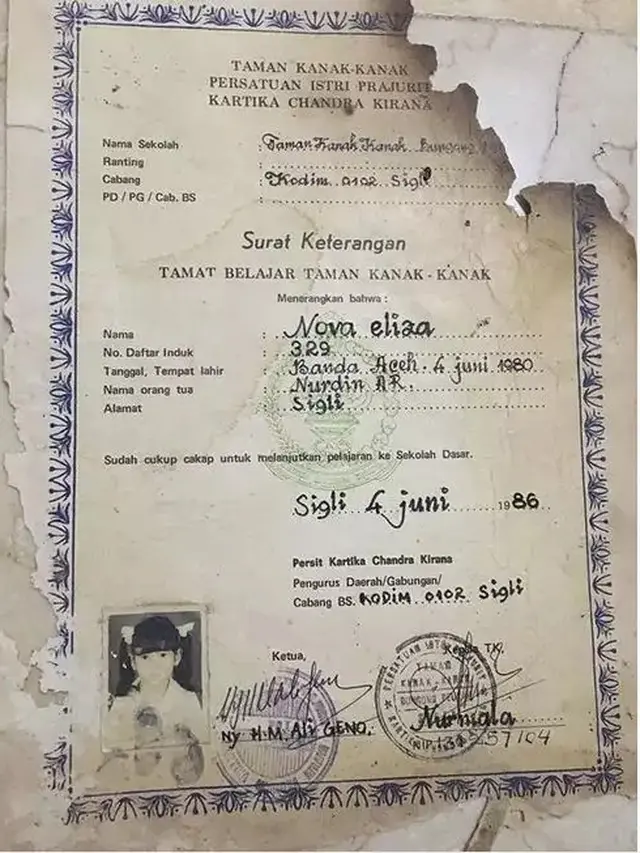 TAMAN KANAK-KANAK
PERSATUAN ISTRI PRAJURIT
KARTIKA CHANDRA KIRANA
Nama Sekolah : Taman Kanak Kanak
Ranting :
Cabang : Kodim 0102 Sigli
PD / PG / Cab. BS :
Surat Keterangan
TAMAT BELAJAR TAMAN KANAK - KANAK
Menerangkan bahwa :
Nama : Nova eliza
No. Daftar Induk : 329
Tanggal, Tempat lahir : Banda Aceh. 4 juni 1980
Nama orang tua : Nurdin AR.
Alamat : Sigli
Sudah cukup cakap untuk melanjutkan pelajaran ke Sekolah Dasar.
Sigli 4 juni 1986
Persit Kartika Chandra Kirana
Pengurus Daerah/Gabungan/
Cabang BS. KODIM 0102 Sigli
Ketua,
Kepala TK.
PERSATUAN ISTRI PRAJURIT
TAMAN
KANAK - KANAK
Ny H.M Ali GENO.
Nurmala